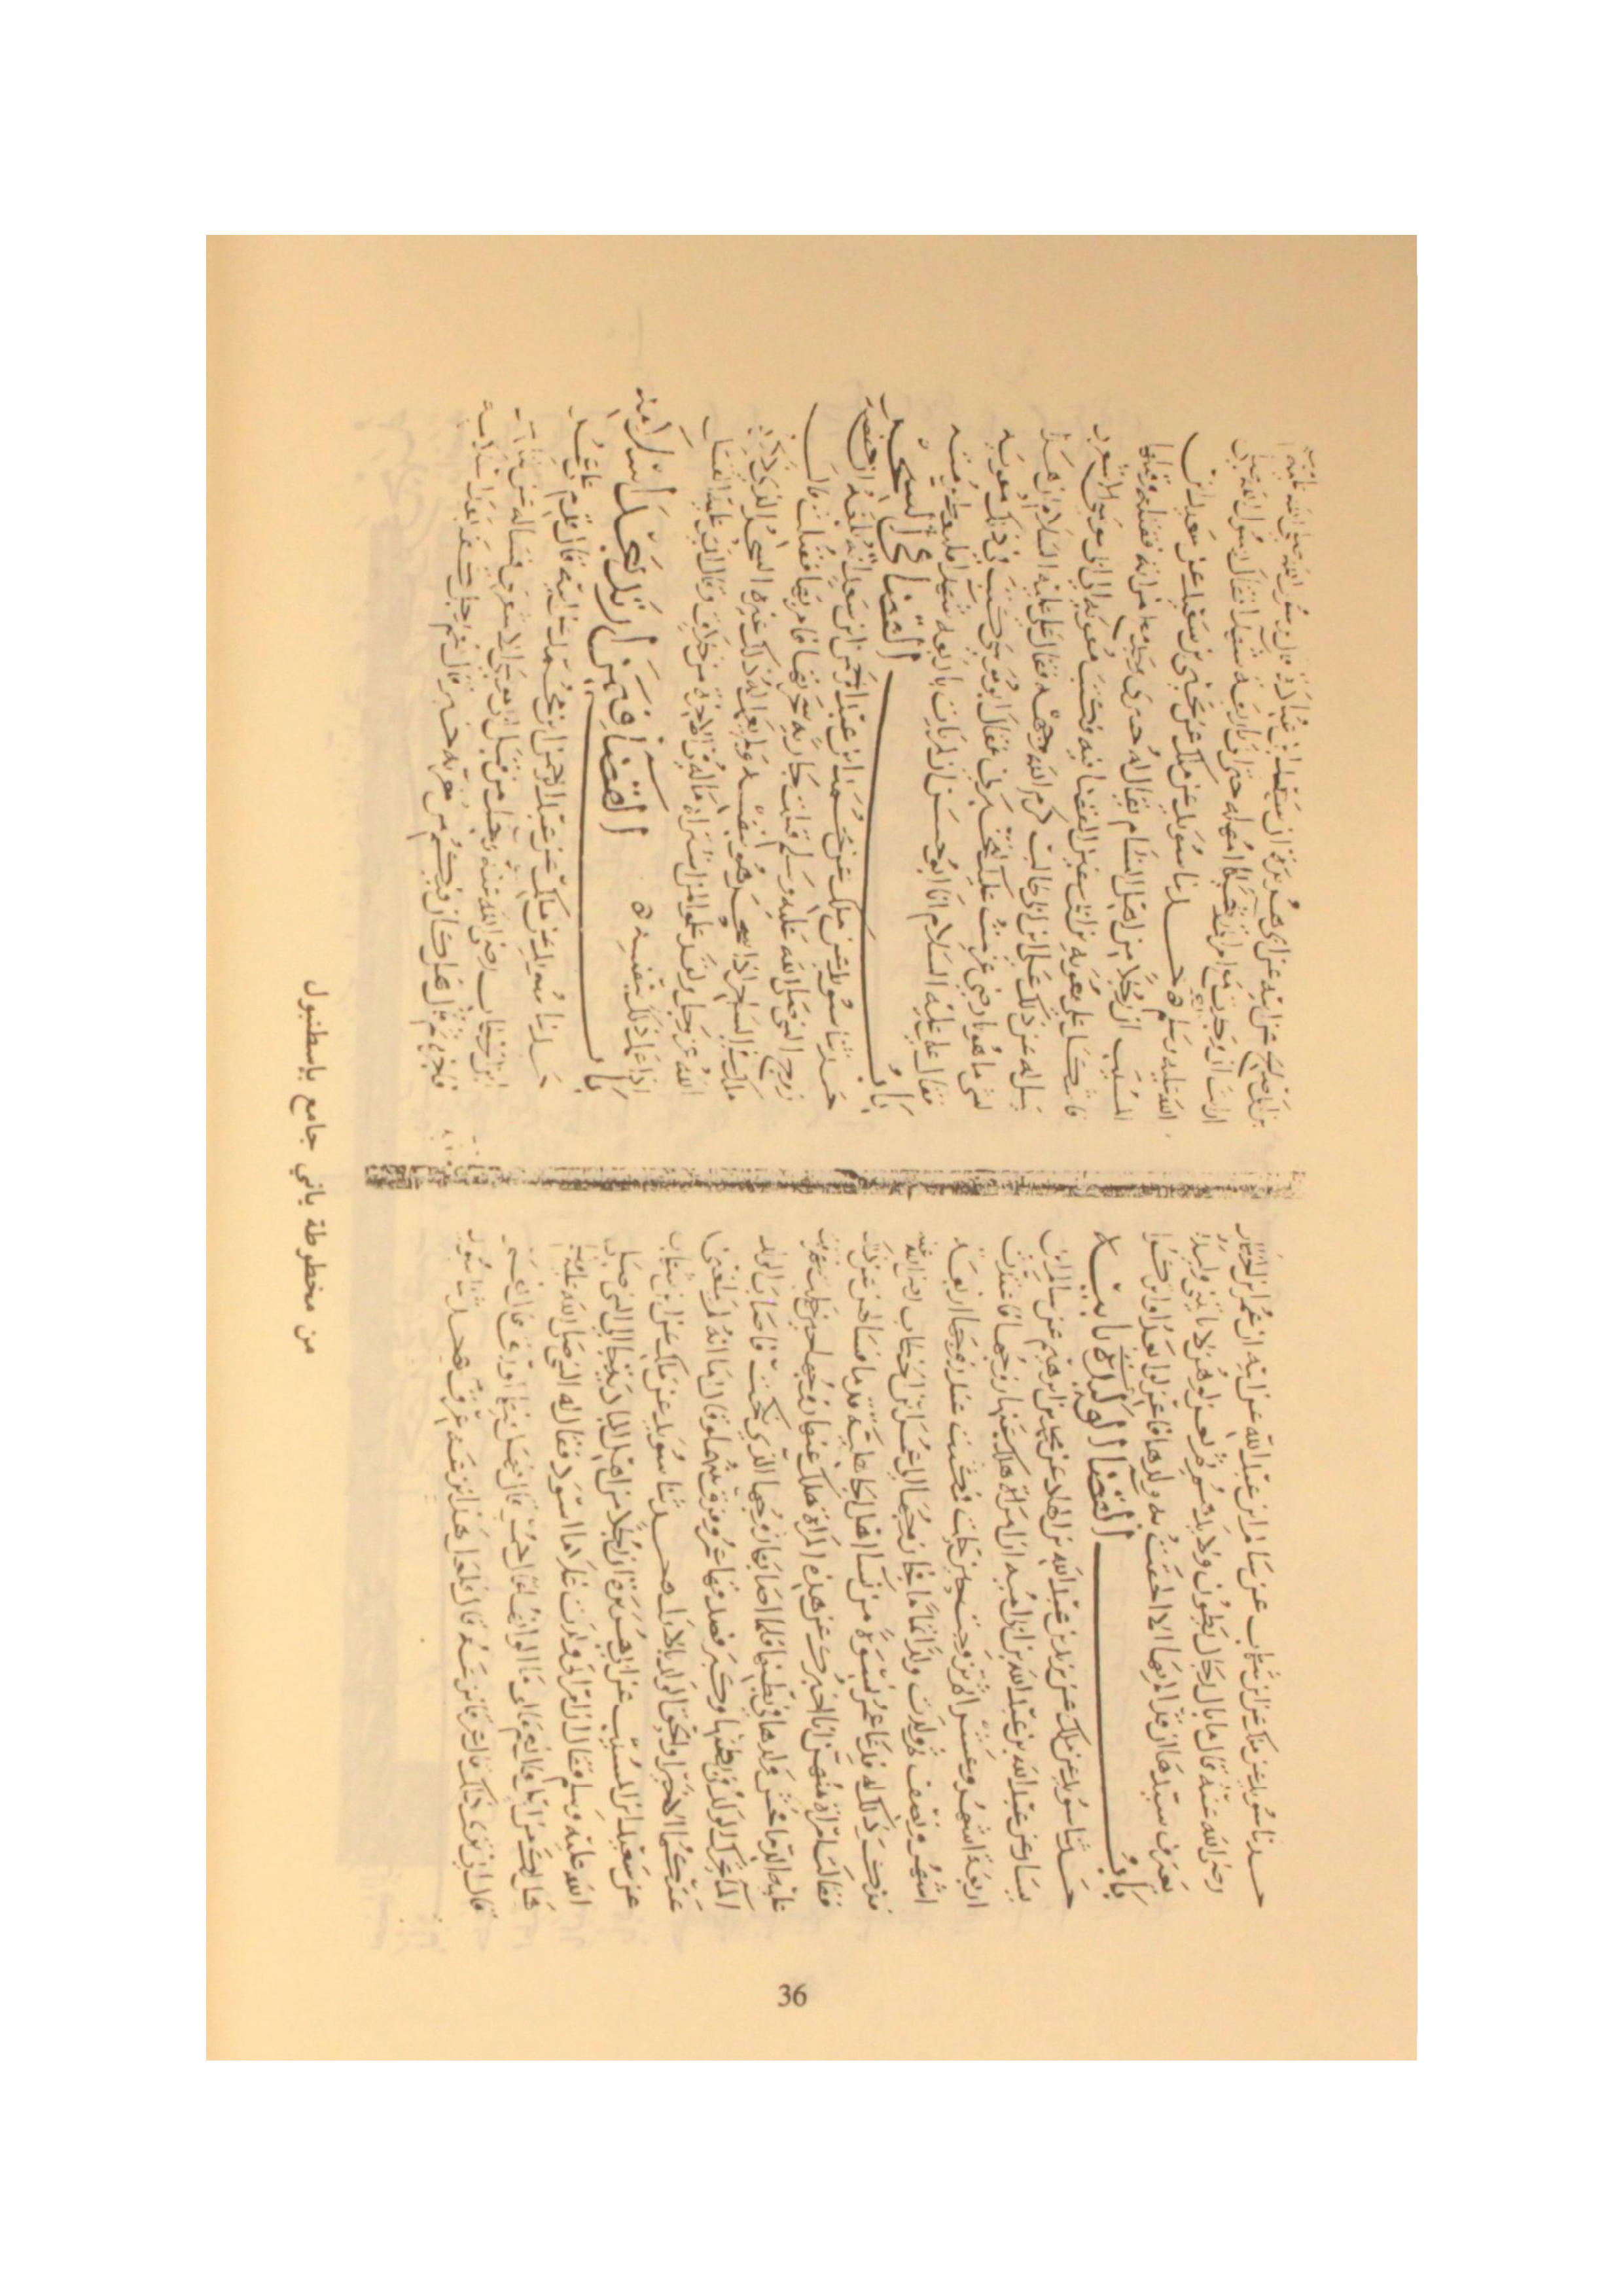 حدثنا سويد عن ملك عن ابن شهاب عن سالم ابن عبد الله عن ابيه ان عمر ابن الخطاب
رضي الله عنه قال ما بال رجال يطون ولايدهم ثم يعزلوهن لا تاتيني وليدة
يعترف سيدها ان قد الم بها الا الحقت به ولدها فاعزلوا بعد او اتركوا
باب القضا الولد لابيه
حدثنا سويد عن ملك عن يزيد بن عبد الله بن الهاد عن محمد بن ابرهيم عن سليمن بن
يسار عن عبد الله بن عبد الله بن ابي امية ان امراة هلك عنها زوجها فاعتدت
اربعة اشهر وعشرا ثم تزوجت حين حلت فمكثت عند زوجها اربعة
اشهر ونصف ثم ولدت ولدا تاما فجا زوجها الى عمر ابن الخطاب رضي الله عنه
فذكر ذلك له فدعا عمر نسوة من نسا اهل الجاهلية قدما فسالهن عن ذلك
فقالت امراة منهن انا اخبرك عن هذه المراة هلك عنها زوجها حين حملت
عليه الدما فحش ولدها في بطنها فلما اصابها زوجها الذي نكحت فاصاب الولد
الما تحرك الولد في بطنها وكبر فصدقها عمر وفرق بينهما وقال اما انه لم يبلغني
عنكما الا خيرا والحق الولد بالاول حدثنا سويد عن ملك عن ابن شهاب
عن سعيد ابن المسيب عن ابي هريرة ان رجلا من اهل البادية اتى الى النبي صلى
الله عليه وسلم فقال ان امراتي ولدت غلاما اسود فقال له النبي صلى الله عليه
هل لك من ابل قال نعم قال ما الوانها قال حمر قال هل فيها اورق قال نعم
قال انى ترى ذلك قال عرق نزعه قال فلعل هذا نزعه عرق حدثنا سويد
بن ابي صالح عن ابيه عن ابي هريرة ان سعد ابن عبادة قال لرسول الله صلى الله عليه
ارايت ان وجدت مع امراتي رجلا امهله حتى اتي باربعة شهدا فقال رسول الله صلى
الله عليه وسلم حدثنا سويد عن ملك عن يحيى بن سعيد عن سعيد ابن
المسيب ان رجلا من اهل الشام يقال له وجد مع امراته فقتله وقتلها
فاشكل على معوية بن ابي سفين القضا فيه فكتب معوية الى ابي موسى الاشعري
يسل له عن ذلك علي ابن ابي طالب كرم الله وجهه فقال علي عليه السلام ان هذا
لشي ما هو بارضي عزمت عليك لتخبرني فقال ابو موسى كتب في ذلك معوية
فقال علي عليه السلام انا ابو حسن ان لم يات باربعة شهدا فليعط برمته
باب القضا في السحر
حدثنا سويد عن ملك عن محمد ابن عبد الرحمن ابن سعد انه بلغه ان حفصة
زوج النبي صلى الله عليه وسلم قتلت جارية سحرتها فامر بها فقتلت قال
ملك الساحر اذا سحر هو نفسه ولم يعمل له ذلك غيره السحر الذي ذكر
الله عز وجل ولقد علموا لمن اشتراه ما له في الاخرة من خلاق وقال ارى عليه القتل
اذا عمل ذلك بنفسه
باب القضا فيمن ارتد بعد اسلامه
حدثنا سويد عن ملك عن عبد الرحمن ابن محمد عن ابيه قال قدم على عمر
ابن الخطاب رضي الله عنه رجل من قبل ابي موسى الاشعري فساله عن الناس
فاخبره ثم قال هل كان فيكم من مغربة خبر قال نعم رجل كفر بعد اسلامه
من مخطوطة ياني جامع باسطنبول
36